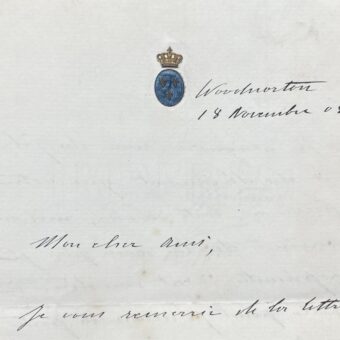 Woodnorton
18 Novembre 0
Mon cher ami,
Je vous remercie de la lettr